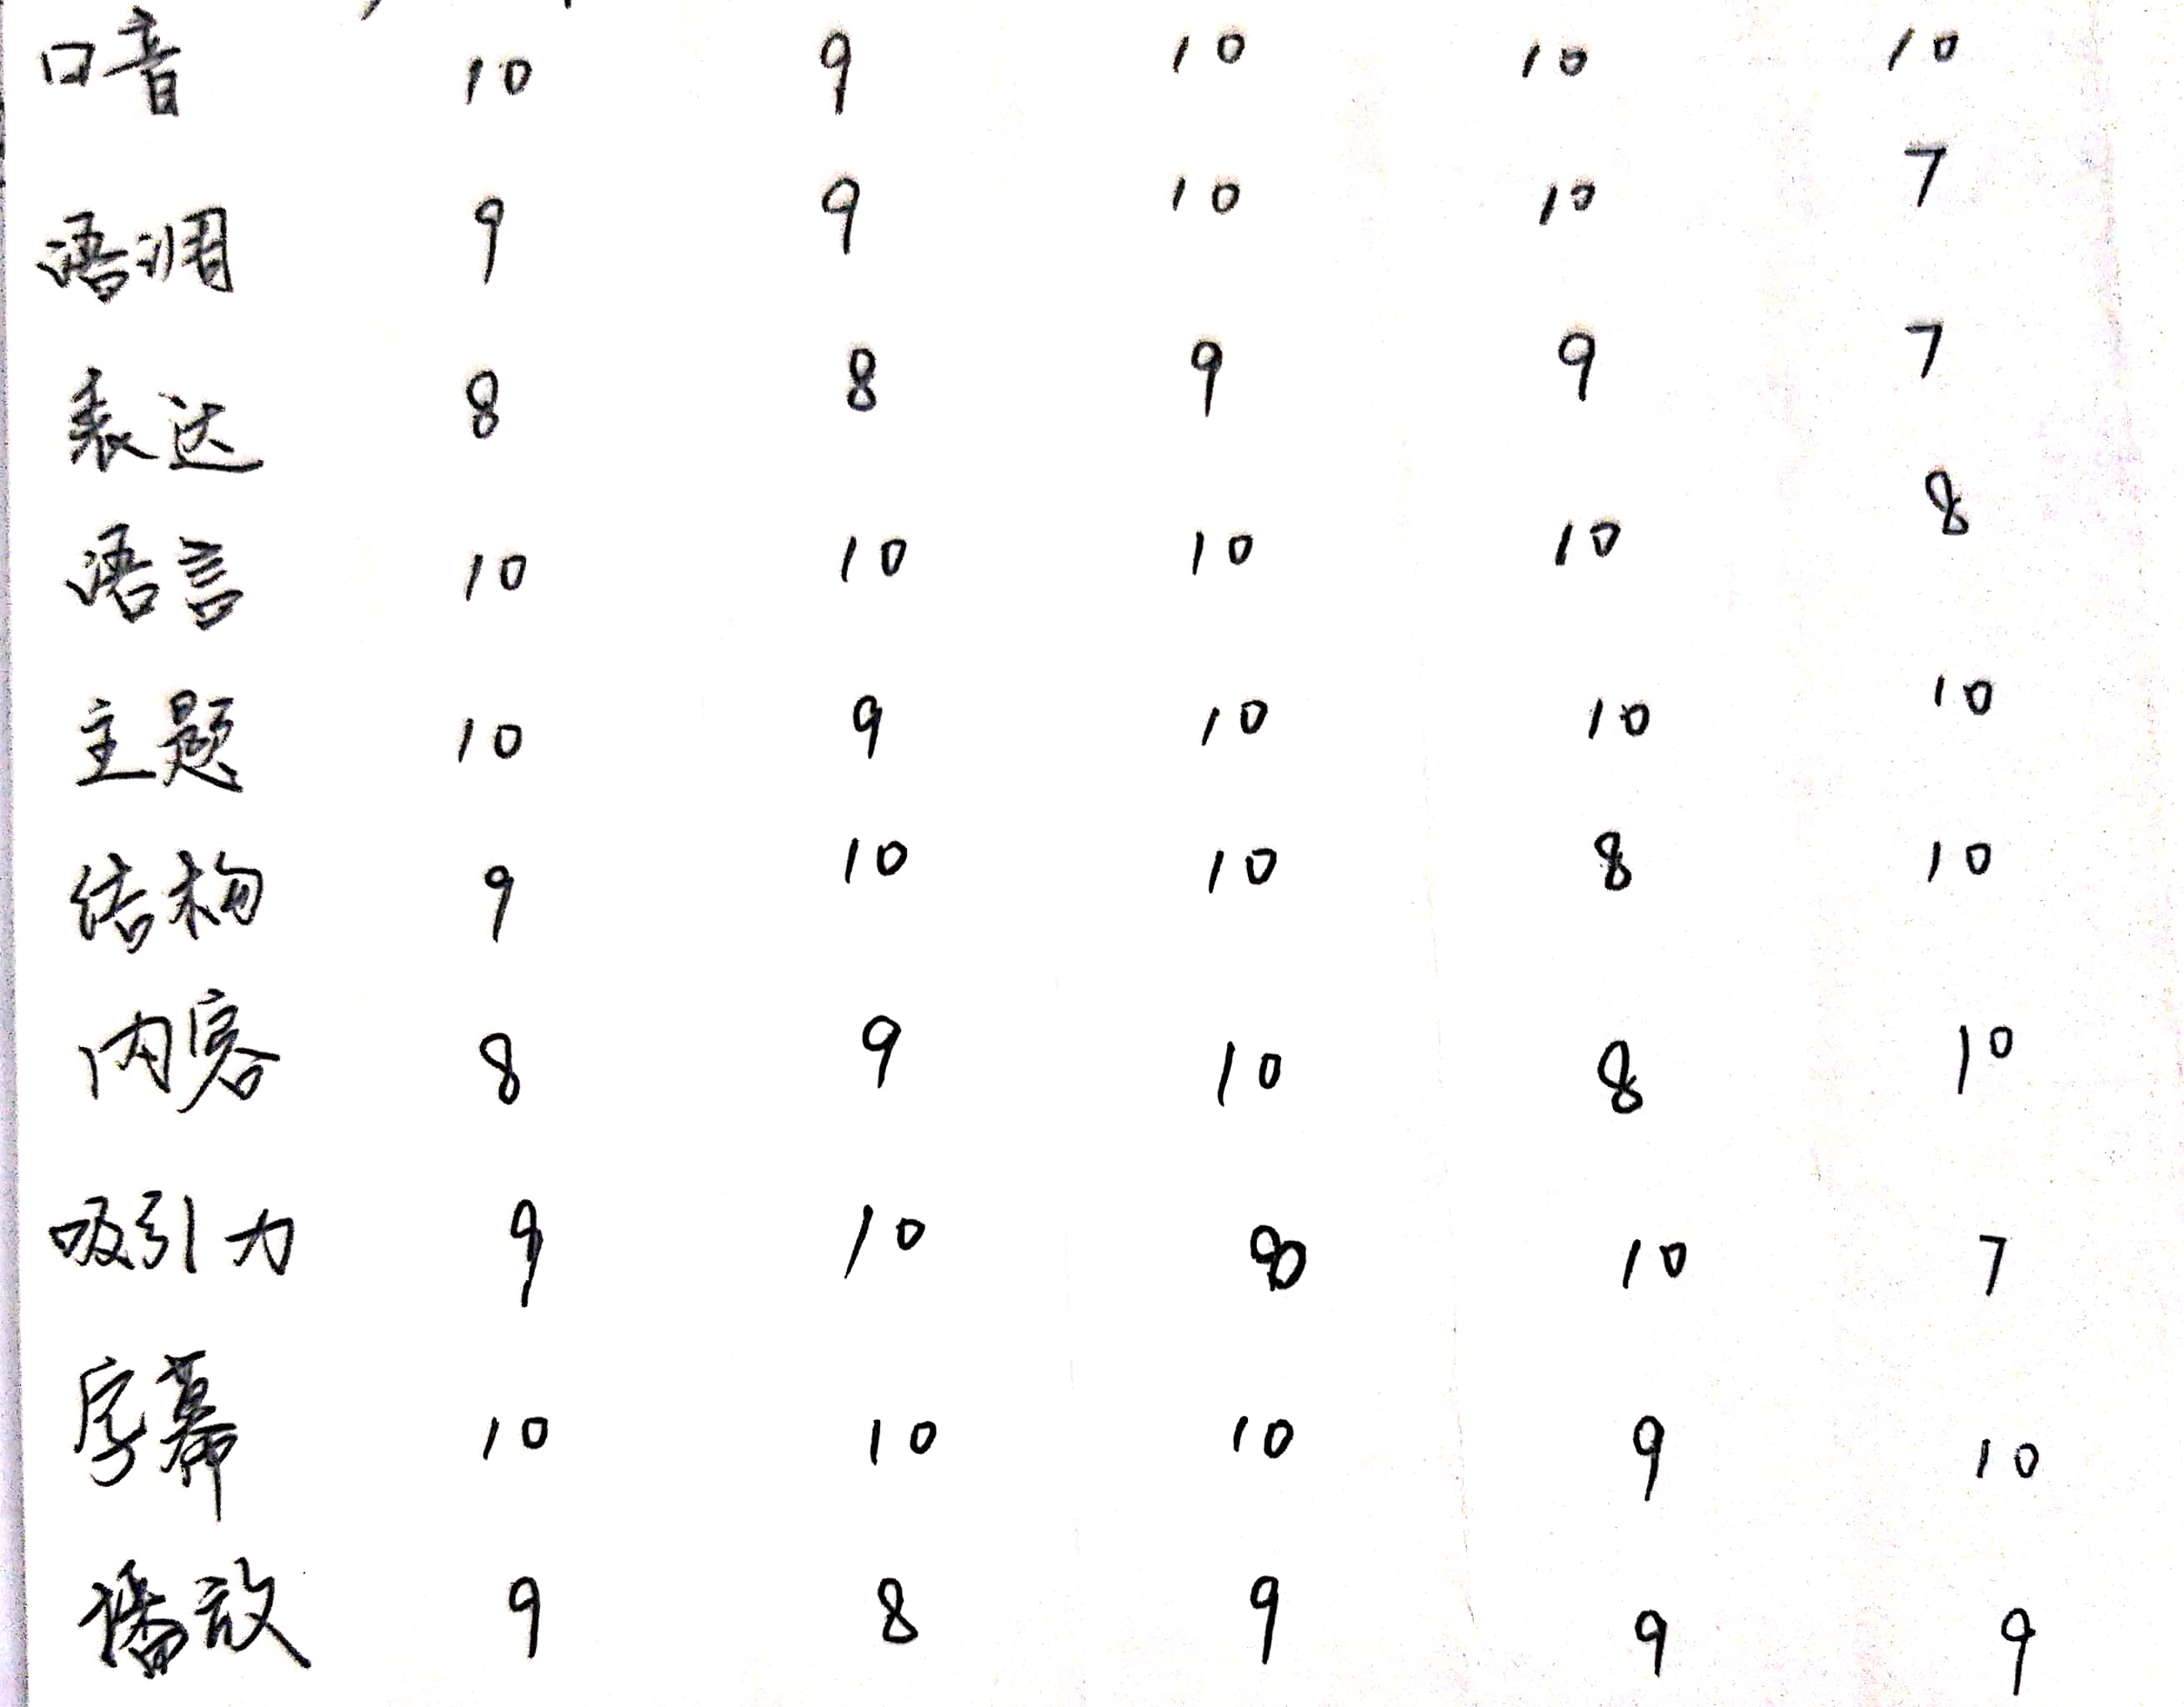 口音 10 9 10 10 10
语调 9 9 10 10 7
表达 8 8 9 9 7
语言 10 10 10 10 8
主题 10 9 10 10 10
结构 9 10 10 8 10
内容 8 9 10 8 10
吸引力 9 10 10 7
字幕 10 10 10 9 10
播放 9 8 9 9 9